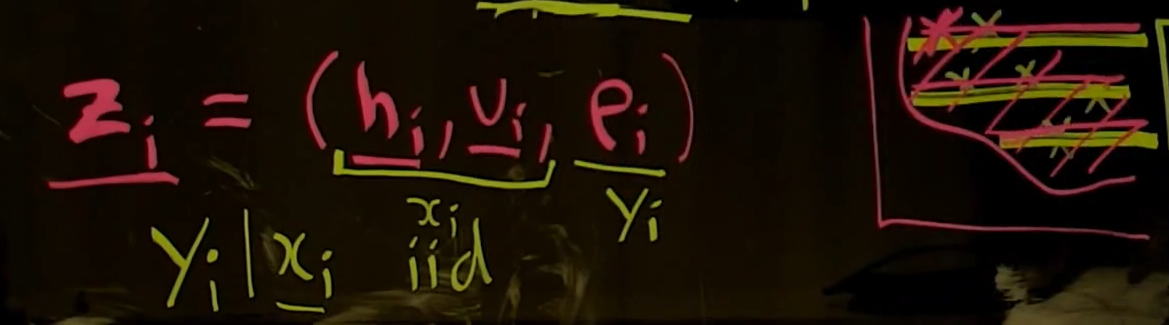 z_i = (h_i, v_i, e_i)
x_i y_i
y_i | x_i iid